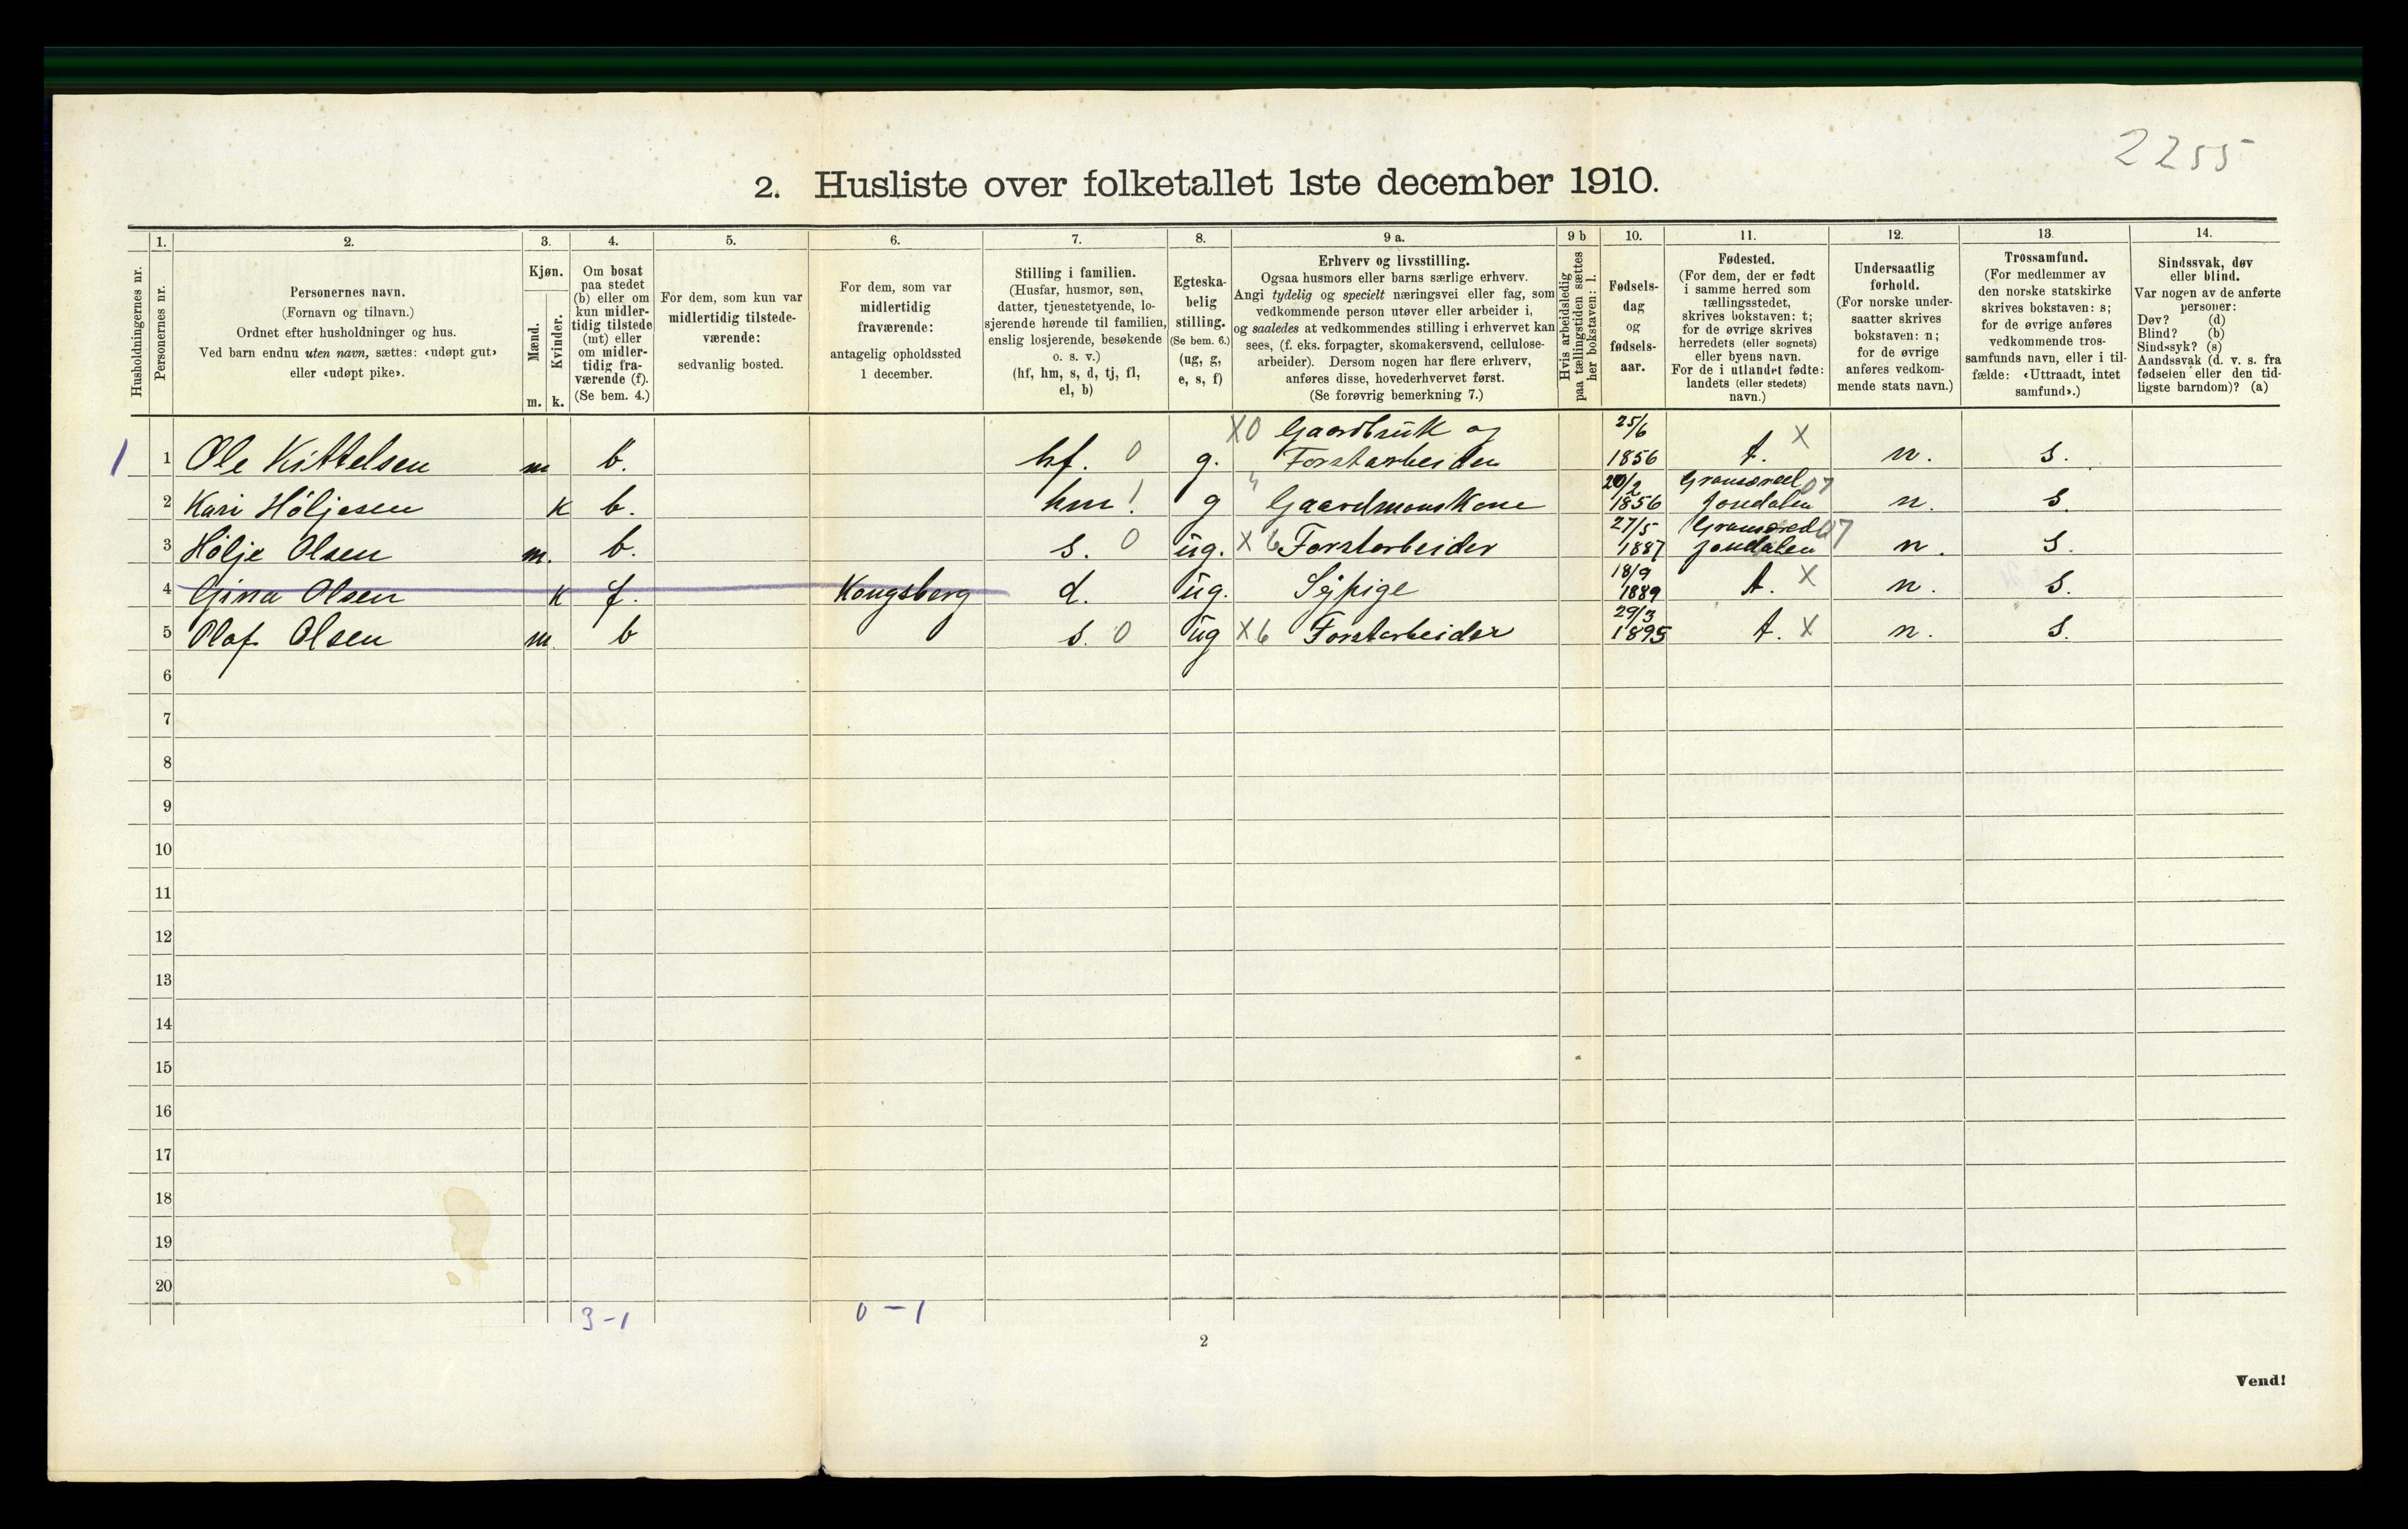 2255
2. Husliste over folketallet 1ste december 1910.
1. 2. 3. 4. 5. 6. 7. 8. 9 a. 9 b 10. 11. 12. 13. 14.
Husholdningernes nr.
Personernes nr.
Personernes navn.
(Fornavn og tilnavn.)
Ordnet efter husholdninger og hus.
Ved barn endnu uten navn, sættes: «udøpt gut»
eller «udøpt pike».
Kjøn.
Mænd.
Kvinder.
m. k.
Om bosat
paa stedet
(b) eller om
kun midler-
tidig tilstede
(mt) eller
om midler-
tidig fra-
værende (f).
(Se bem. 4.)
For dem, som kun var
midlertidig tilstede-
værende:
sedvanlig bosted.
For dem, som var
midlertidig
fraværende:
antagelig opholdssted
1 december.
Stilling i familien.
(Husfar, husmor, søn,
datter, tjenestetyende, lo-
sjerende hørende til familien,
enslig losjerende, besøkende
o. s. v.)
(hf, hm, s, d, tj, fl,
el, b)
Egteska-
belig
stilling.
(Se bem. 6.)
(ug, g,
e, s, f)
Erhverv og livsstilling.
Ogsaa husmors eller barns særlige erhverv.
Angi tydelig og specielt næringsvei eller fag, som
vedkommende person utøver eller arbeider i,
og saaledes at vedkommendes stilling i erhvervet kan
sees, (f. eks. forpagter, skomakersvend, cellulose-
arbeider). Dersom nogen har flere erhverv,
anføres disse, hovederhvervet først.
(Se forøvrig bemerkning 7.)
Hvis arbeidsledig
paa tællingstiden sættes
her bokstaven: l.
Fødsels-
dag
og
fødsels-
aar.
Fødested.
(For dem, der er født
i samme herred som
tællingsstedet,
skrives bokstaven: t;
for de øvrige skrives
herredets (eller sognets)
eller byens navn.
For de i utlandet fødte:
landets (eller stedets)
navn.)
Undersaatlig
forhold.
(For norske under-
saatter skrives
bokstaven: n;
for de øvrige
anføres vedkom-
mende stats navn.)
Trossamfund.
(For medlemmer av
den norske statskirke
skrives bokstaven: s;
for de øvrige anføres
vedkommende tros-
samfunds navn, eller i til-
fælde: «Uttraadt, intet
samfund».)
Sindssvak, døv
eller blind.
Var nogen av de anførte
personer:
Døv? (d)
Blind? (b)
Sindssyk? (s)
Aandssvak (d. v. s. fra
fødselen eller den tid-
ligste barndom)? (a)
X0 Gaardbruk og 25/6
1 1 Ole Kittelsen m b. hf. 0 g. Forstarbeider 1856 t. X n. s.
20/2
2 Kari Høljesen K b. hm ! g Gaardmanskone 1856 Jondalen 07 n. s.
27/5
3 Hølje Olsen m. b. s. 0 ug. X 6 Forstarbeider 1887 Jondalen 07 n. s.
18/9
4 Gina Olsen K f. Kongsberg d. ug. Sypige 1889 t. X n. s.
29/3
5 Olaf Olsen m. b s. 0 ug X 6 Forstarbeider 1895 t. X n. s.
6
7
8
9
10
11
12
13
14
15
16
17
18
19
20
3 - 1 0 - 1
2
Vend!